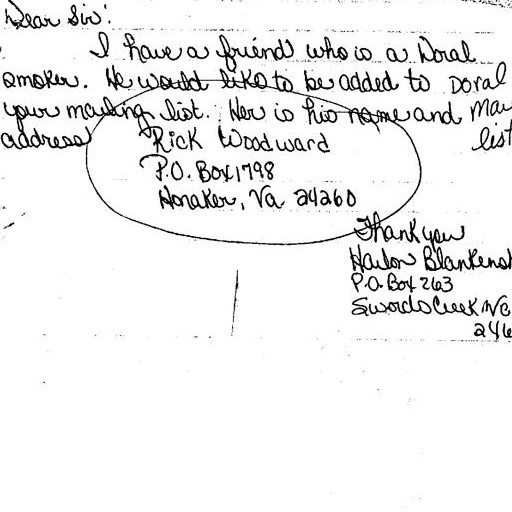 Dear Sir:
I have a friend who is a Doral
smoker. He would like to be added to Doral
your mailing list. Her is his name and Mai
address list
Rick Woodward
P.O. Box 1798
Honaker, Va 24260
Thank you
Harlon Blankensh
P.O. Box 263
Swords Creek
246